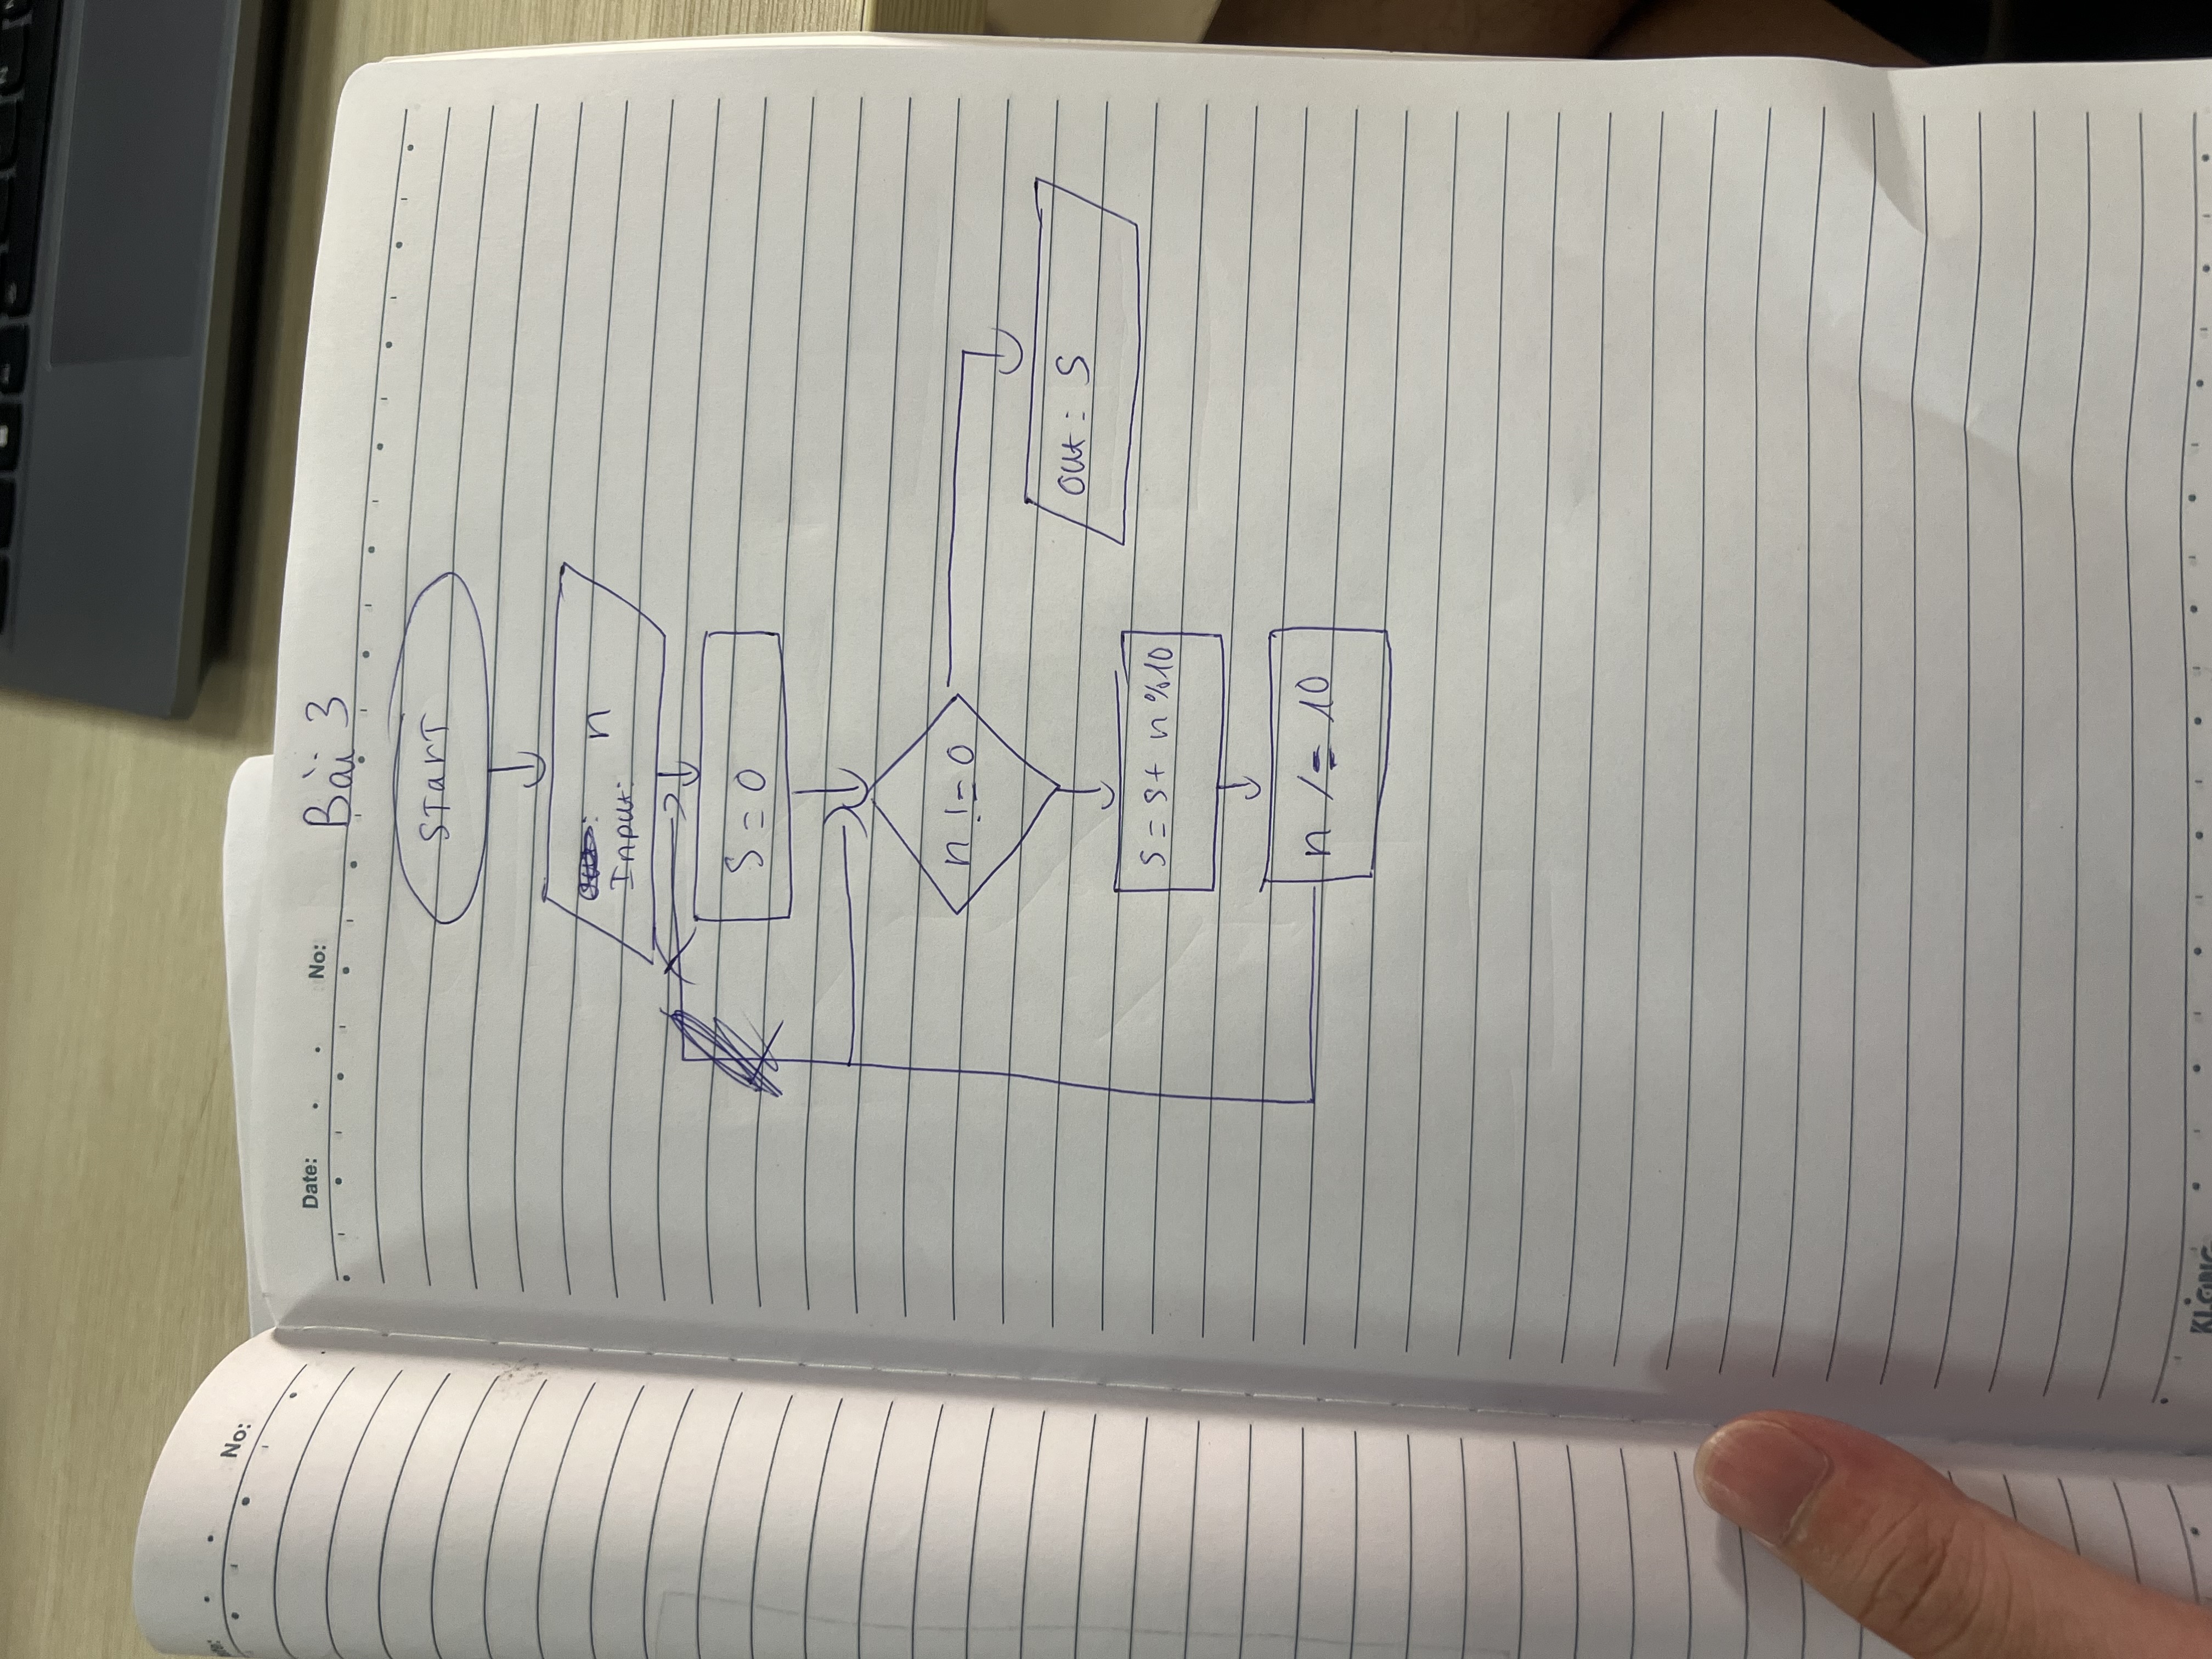 No:
Date: No: Bài 3
START
Input: n
S = 0
n != 0
out: S
S = S + n % 10
n /= 10
KLONG